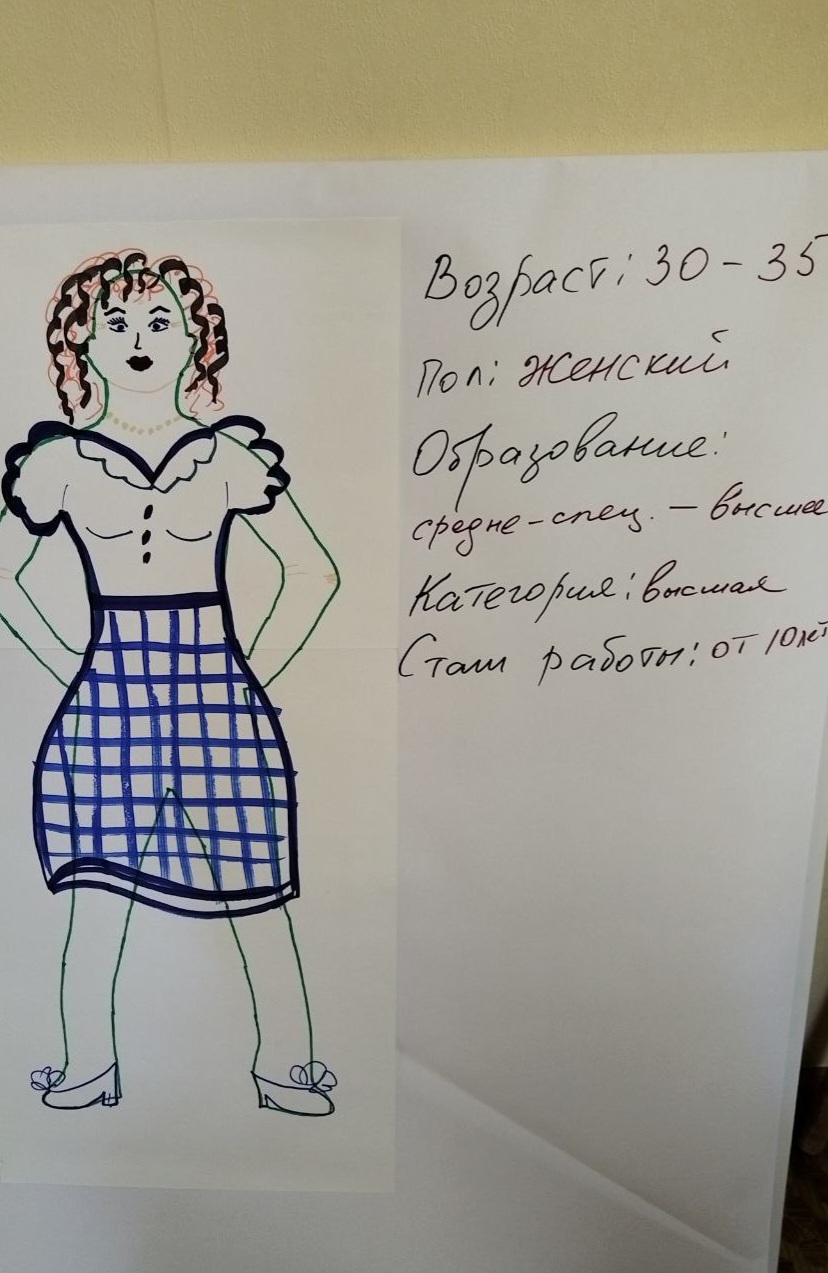 Возраст: 30 - 35
Пол: женский
Образование:
средне-спец. - высшее
Категория: высшая
Стаж работы: от 10 лет